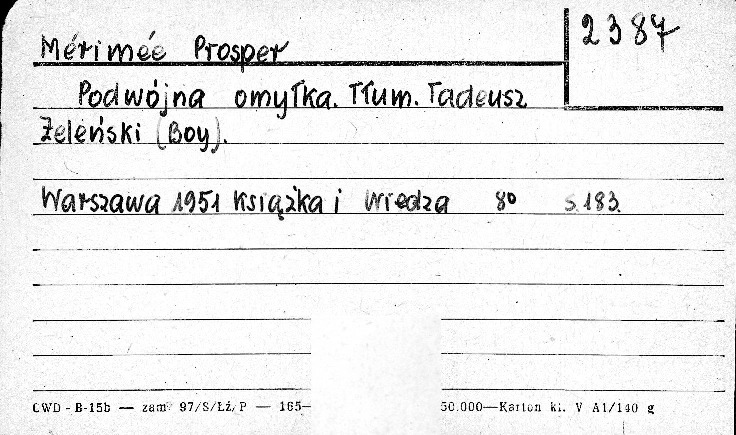 2387
Mérimée Prosper
Podwójna omyłka. Tłum. Tadeusz
Żeleński (Boy).
Warszawa 1951 Książka i Wiedza 8° s. 183.
CWD - B-15b — zam. 97/S/Łź/P — 165— 50.000—Karton kl. V A1/140 g